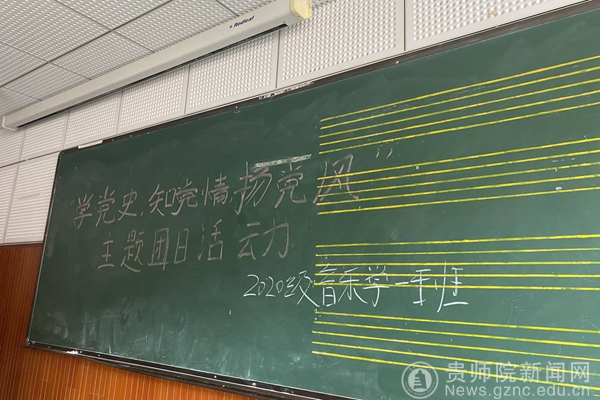 Redleaf
“学党史,知党情,扬党风”
主题团日活动
2020级音乐学一班
贵师院新闻网
News.gznc.edu.cn